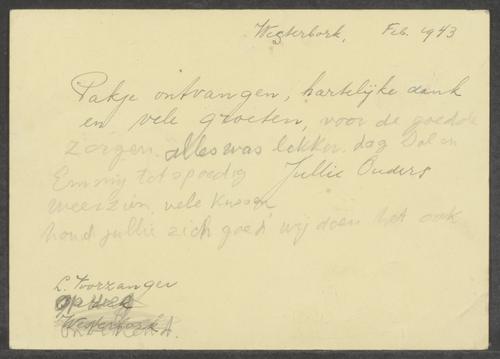 Westerbork, Feb. 1943
Pakje ontvangen, hartelijke dank
en vele groeten, voor de goede
zorgen. alles was lekker. dag Dol en
Emmy tot spoedig Jullie Ouders
weerzien, vele kussen
houd jullie zich goed wij doen het ook
L. Voorzanger
Westerbork